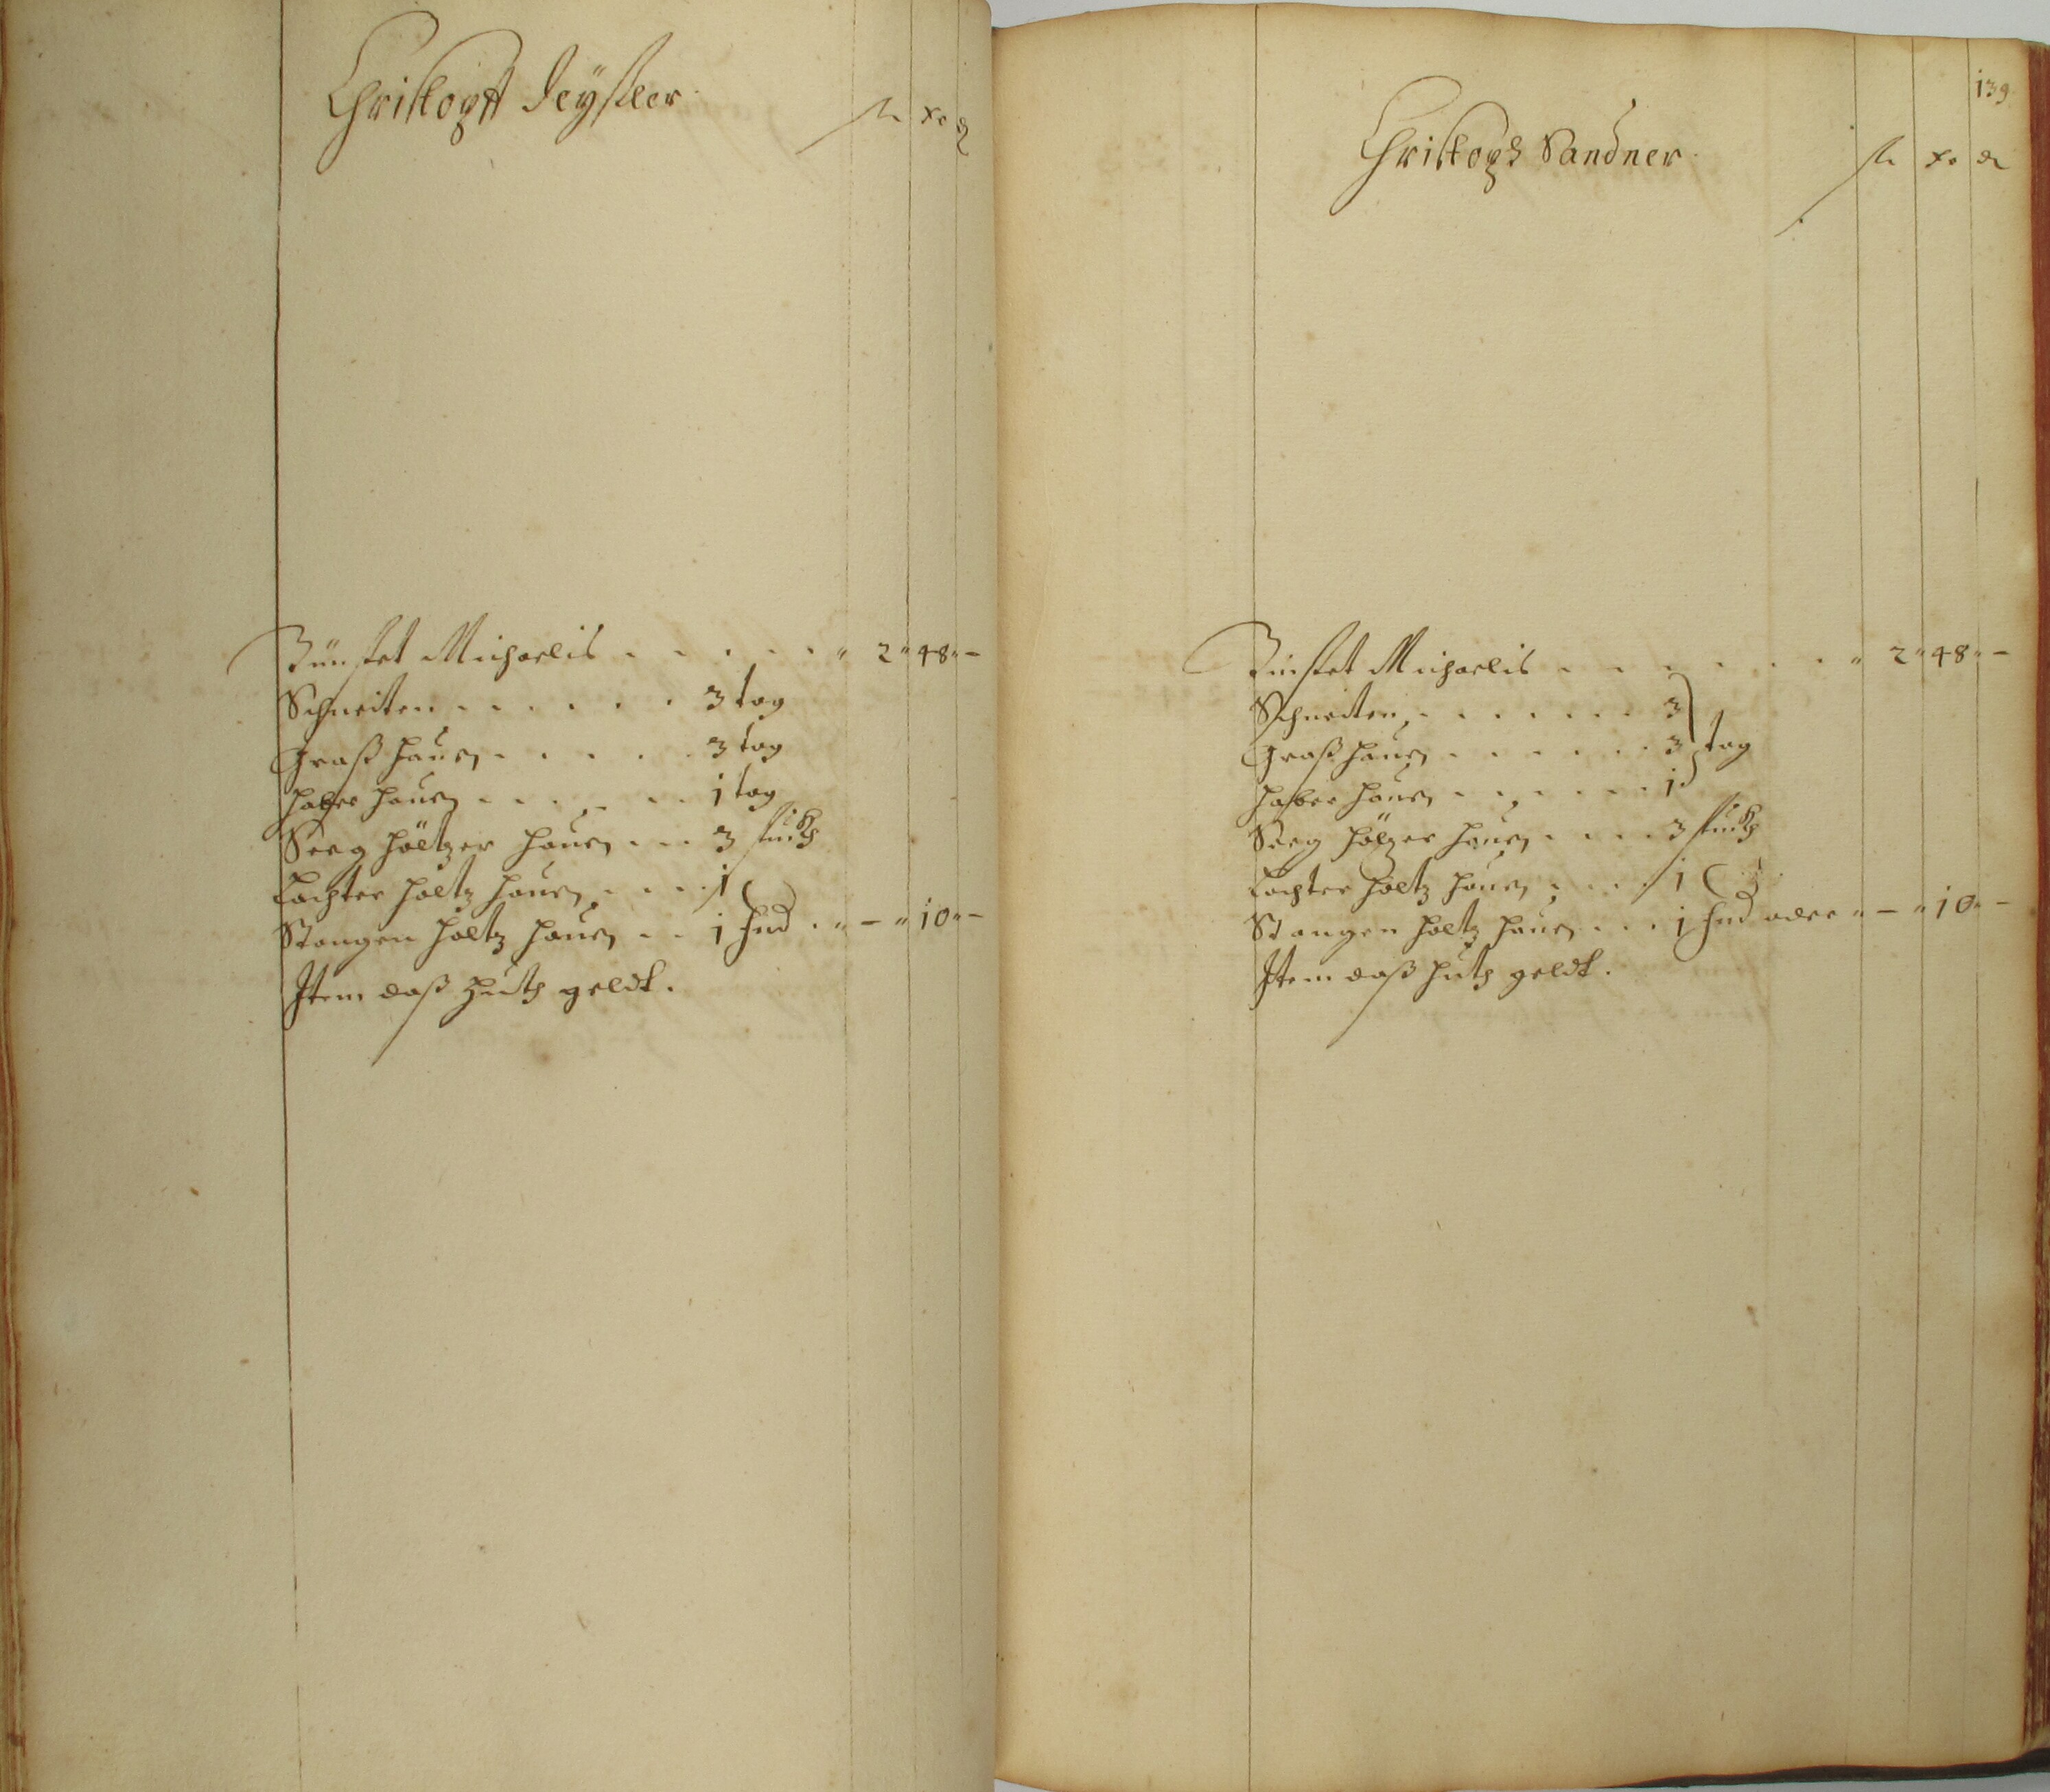 Christoph Deÿsler.
fl xr ₰
Zünset Michaelis . . . . . " 2 " 48 " –
Schneiten . . . . . . 3 tag
Graß hauen . . . . . 3 tag
haber hauen . . . . . . 1 tag
Seeg höltzer hauen . . . 3 stückh
Lachter holtz hauen . . . . 1
Stangen holtz hauen . . 1 hud . " – " 10 " –
Item daß huth geldt.
139.
Christoph Sandner.
fl xr ₰
Zinset Michaelis . . . . . . . " 2 " 48 " –
Schneiten . . . . . . . 3
Graß hauen . . . . . . 3 tag
haber hauen . . . . . . 1
Seeg höltzer hauen . . . . 3 stückh
Lachter holtz hauen . . . . 1
Stangen holtz hauen . . . 1 hud oder " – " 10 " –
Item daß huth geldt.